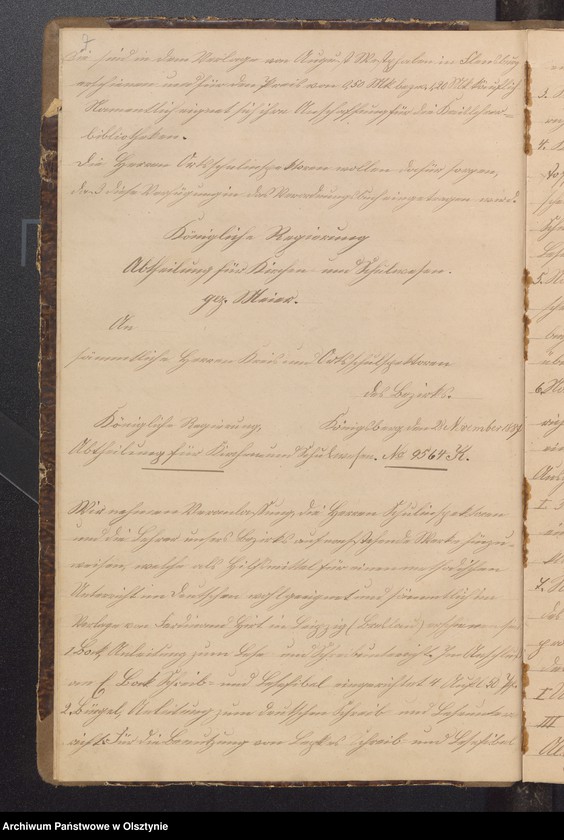 7
Sie sind in dem Verlage von August Westphalen in Flensburg
erschienen und für den Preis von 0,50 Mk bezw. 1,20 Mk käuflich
Namentlich eignet sich ihre Anschaffung für die Kreislehrer-
bibliotheken.
Die Herren Ortsschulinspektoren wollen dafür sorgen,
daß diese Verfügung in das Verordnungsbuch eingetragen wird.
Königliche Regierung
Abtheilung für Kirchen- und Schulwesen.
gez. Meier.
An
sämmtliche Herren Kreis und Ortsschulinspektoren
des Bezirks.
Königliche Regierung, Königsberg den November
Abtheilung für Kirchen und Schulwesen. No 9564 K.
Wir nehmen Veranlassung, die Herren Schulinspektoren
und die Lehrer unsers Bezirks auf nachstehende Werke hinzu-
weisen, welche als Hilfsmittel für einen methodischen
Unterricht im Deutschen wohl geeignet und sämmtlich im
Verlage von Ferdinand Hirt in Leipzig (Breslau) erschienen sind
1. Bock, Anleitung zum Lese- und Schreibunterricht. Im Anschluß
an E. Bock Schreib- und Lesefibel eingerichtet 4 Aufl. 50 Pf.
2. Bürgel, Anleitung zum deutschen Schreib- und Leseunter-
richt. Für die Benutzung von Schreib und Lesefibel
Archiwum Państwowe w Olsztynie